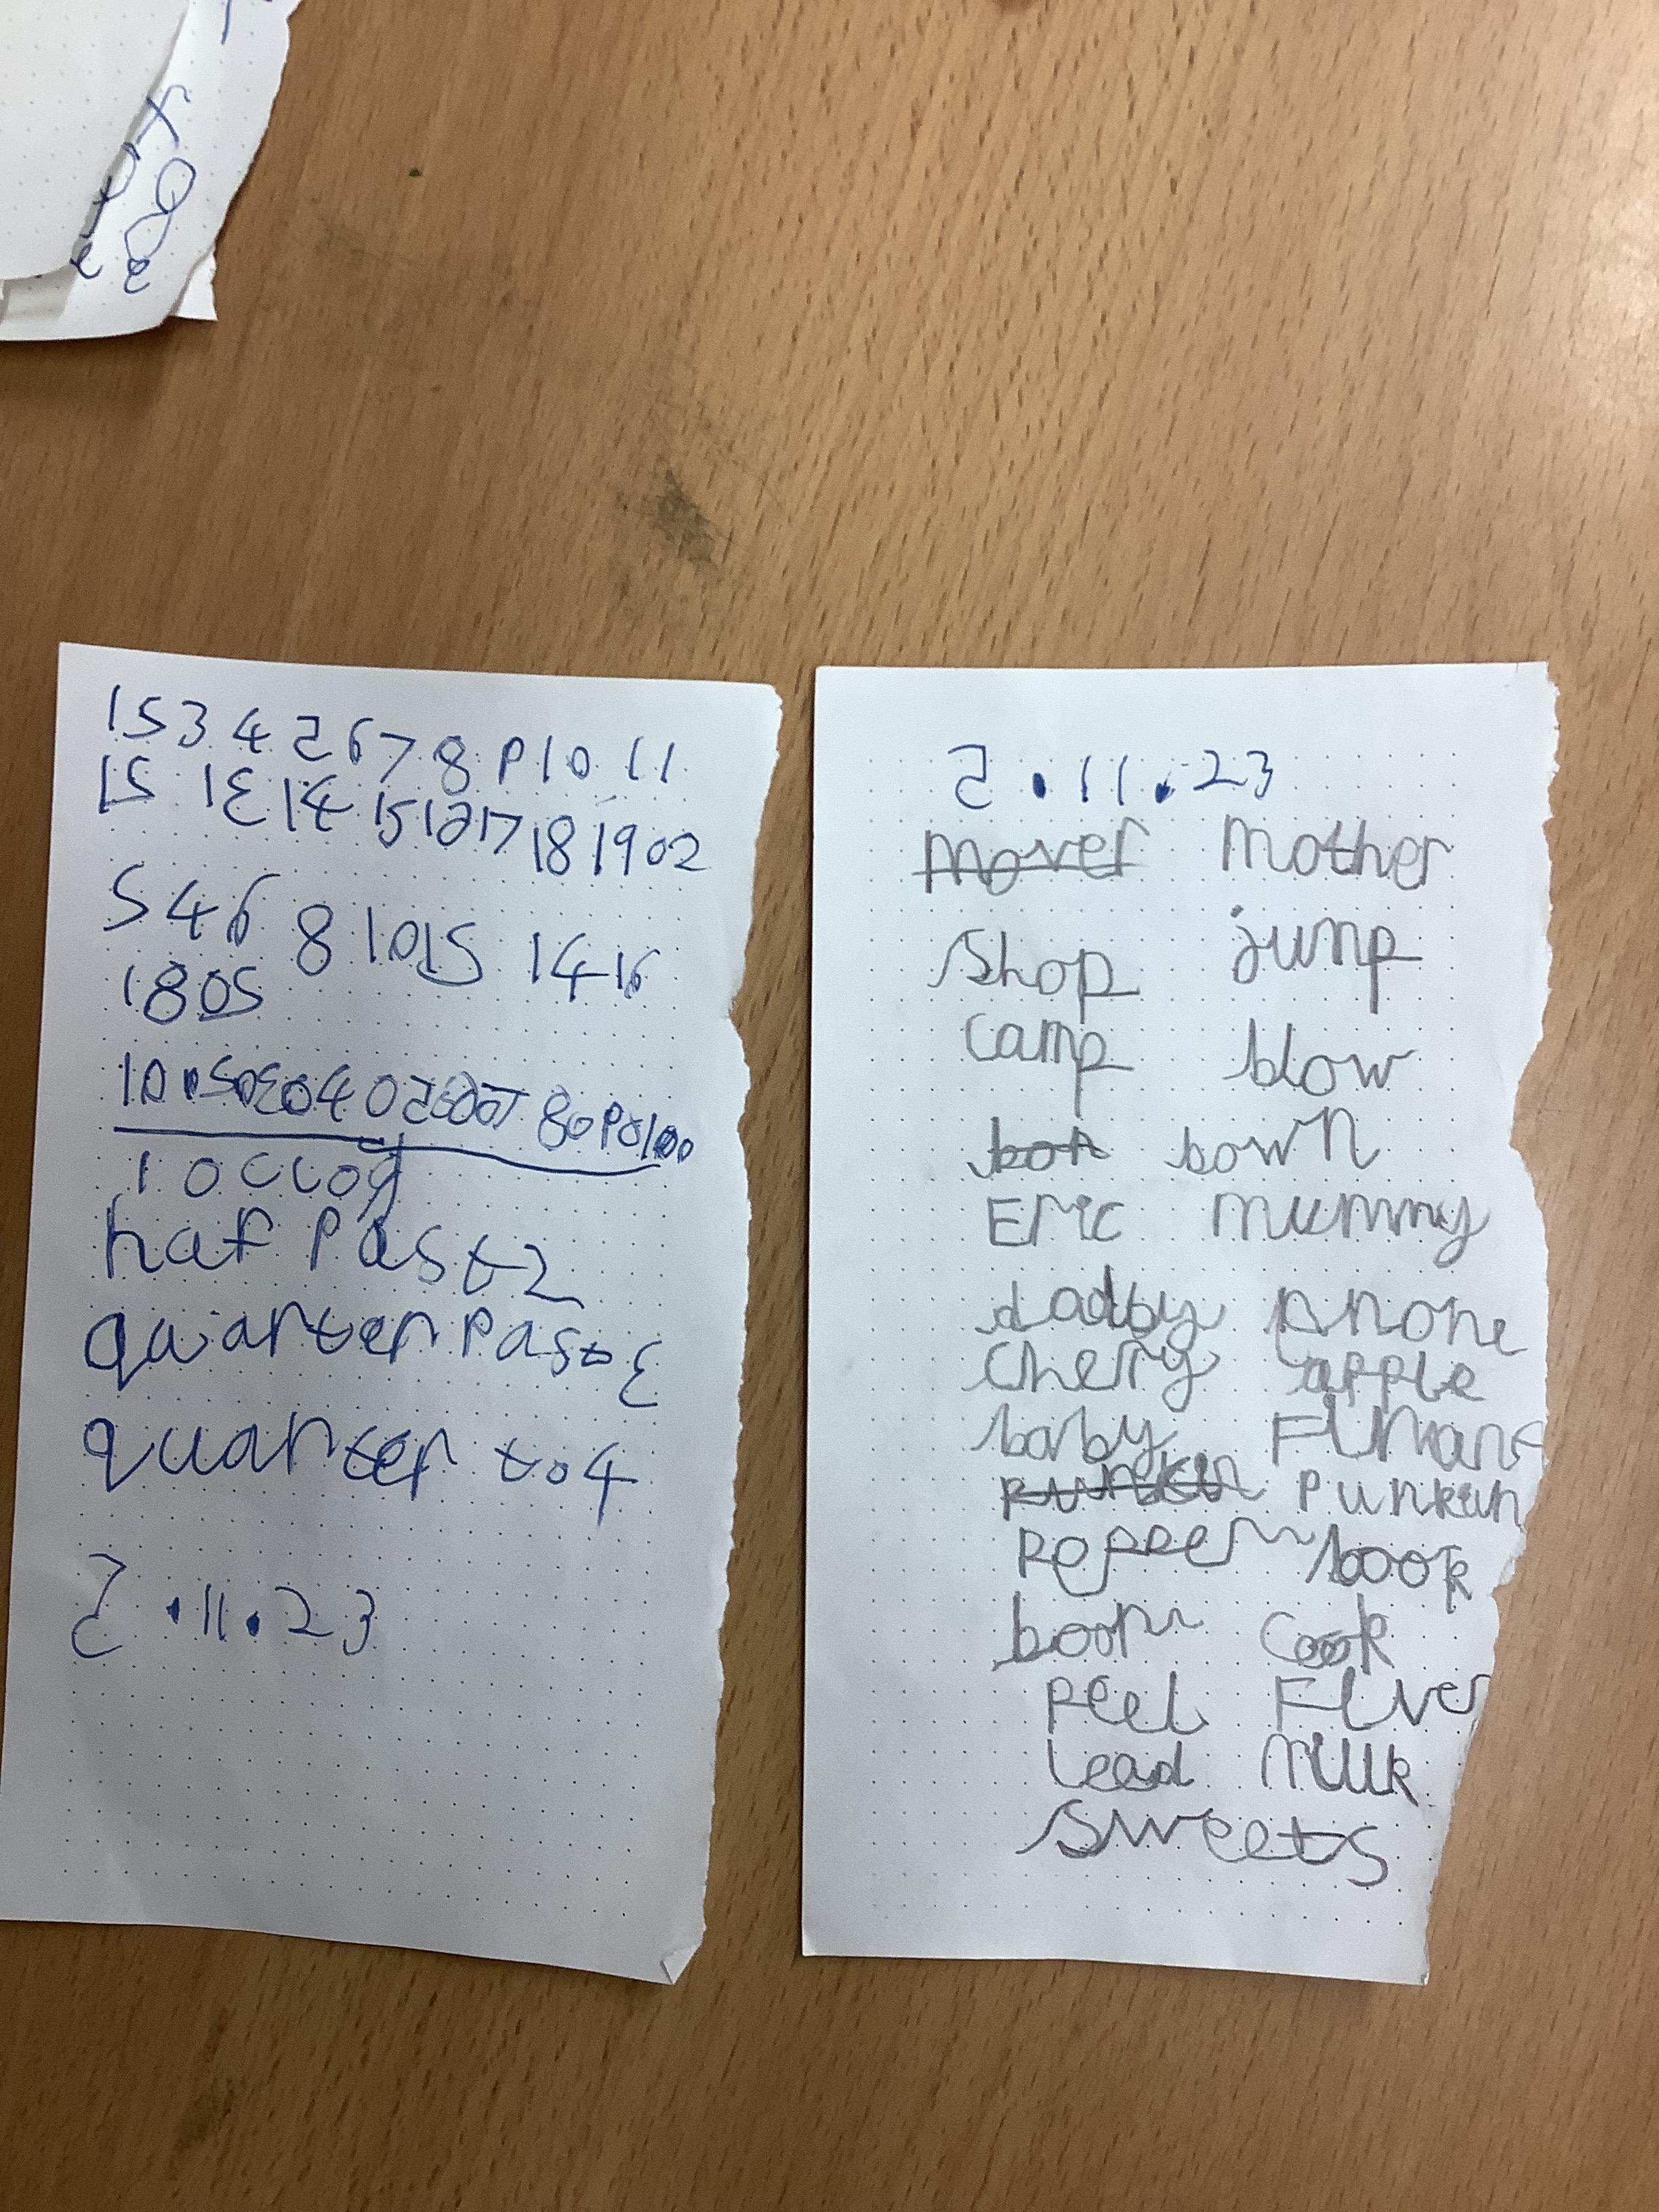 1 2 3 4 5 6 7 8 9 10 11
12 13 14 15 16 17 18 19 02
2 4 6 8 10 12 14 16
18 02
10 20 30 40 50 60 70 80 90 100
1 occog
haf Past 2
quarter Past 3
quarter to 4
5.11.23
5.11.23
mover mother
Shop jump
camp blow
bon bown
Eric mummy
dadby phone
chery apple
baby
punkin Punkin
Pepper book
boom cook
Peel Flver
lead Milk
Sweets